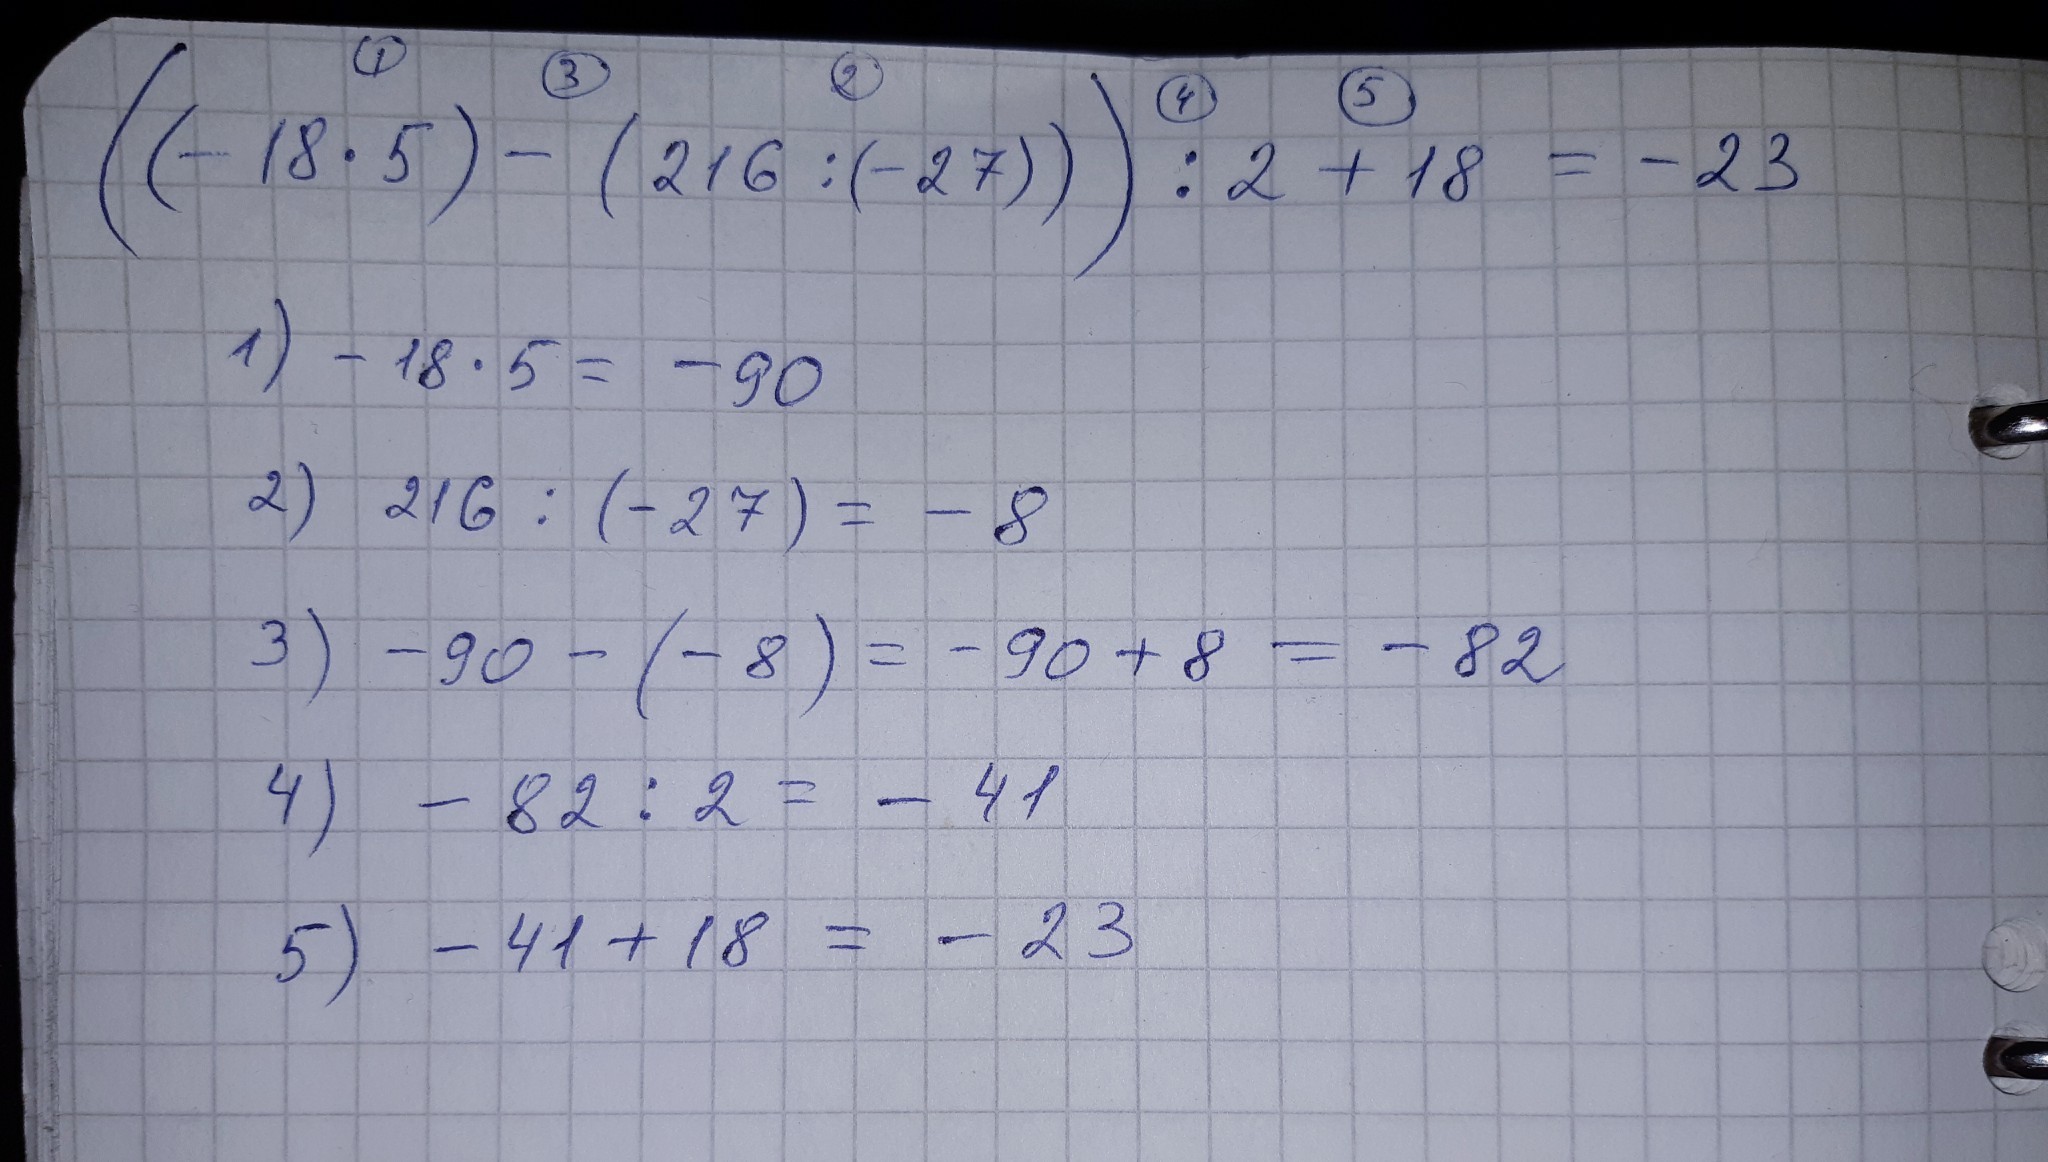 ① ③ ② ④ ⑤
((-18·5)-(216:(-27))):2+18=-23
1) -18·5=-90
2) 216:(-27)=-8
3) -90-(-8)=-90+8=-82
4) -82:2=-41
5) -41+18=-23